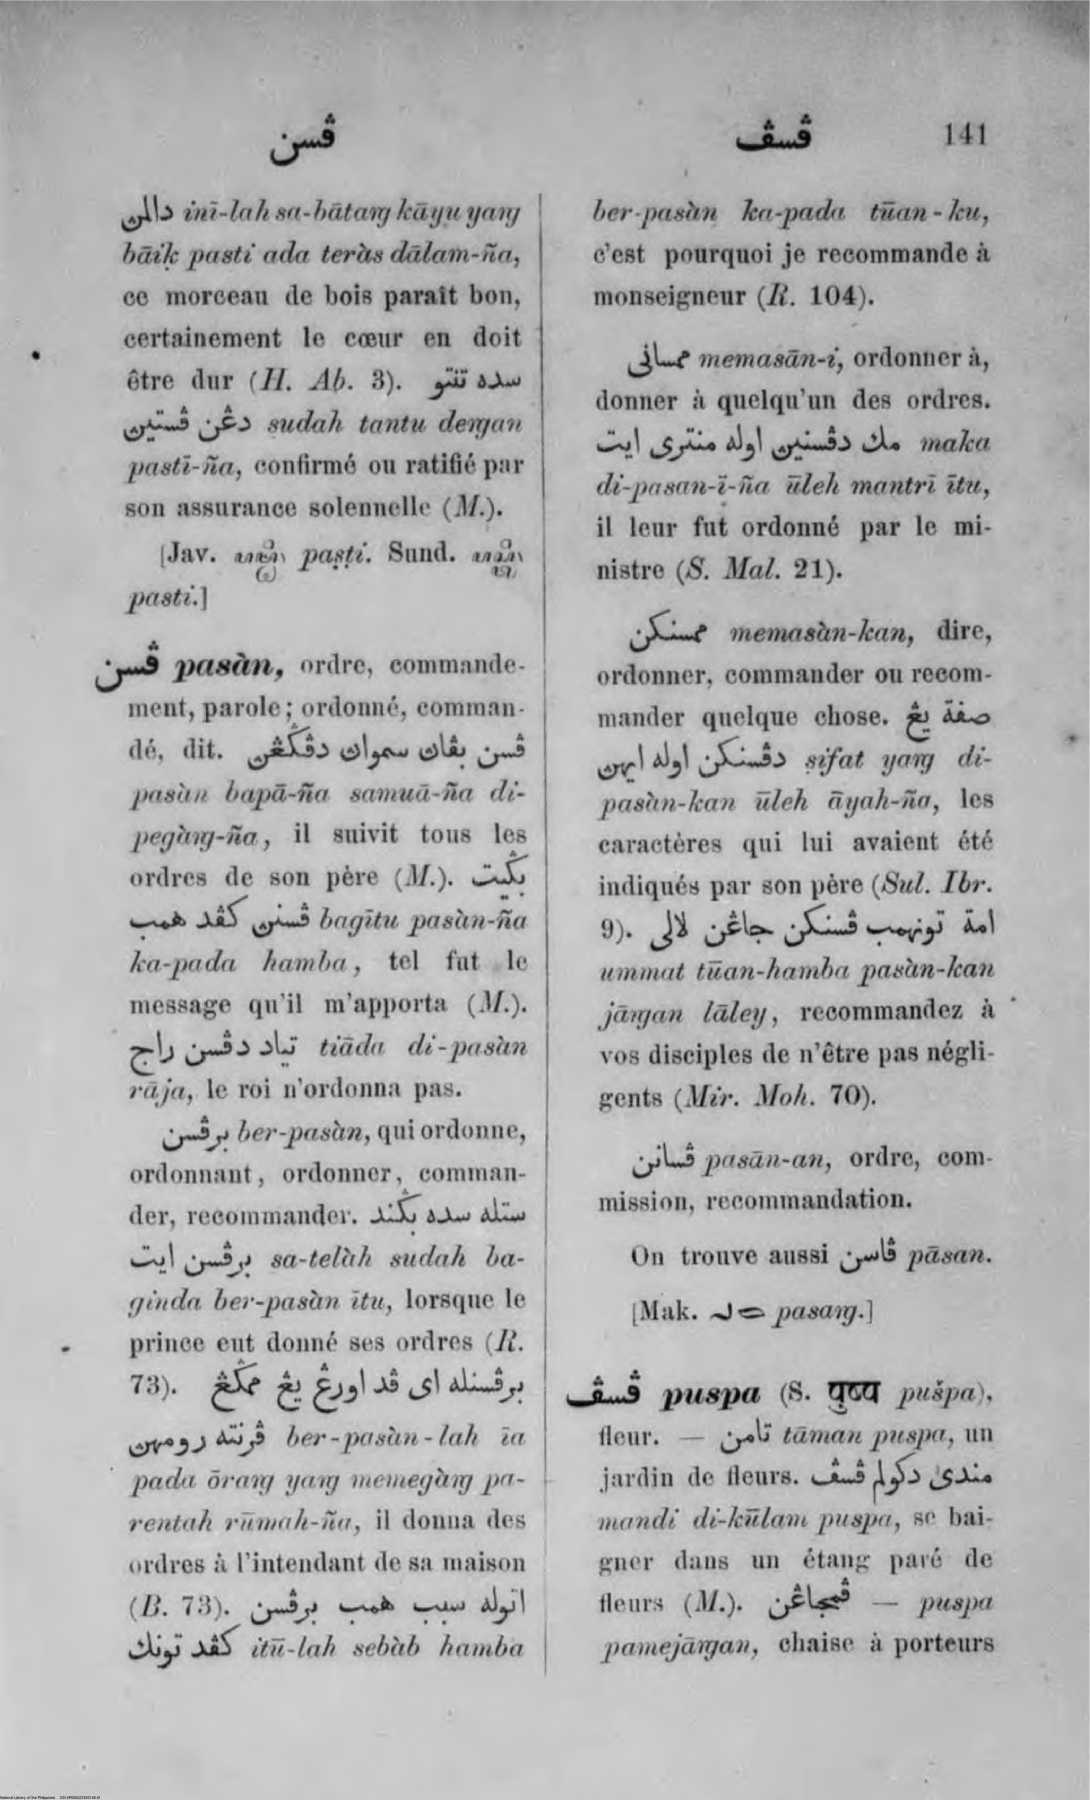 ڤسن
ڤسڤ 141
دالمن inī-lah sa-bātaṅg kāyu yaṅg
bāiḳ pasti ada teràs dālam-ña,
ce morceau de bois paraît bon,
certainement le cœur en doit
être dur (H. Ab. 3). سده تنتو
دڠن ڤستيڽ sudah tantu deṅgan
pastī-ña, confirmé ou ratifié par
son assurance solennelle (M.).
[Jav. paṣṭi. Sund.
pasti.]
ڤسن pasàn, ordre, commande-
ment, parole; ordonné, comman-
dé, dit. ڤسن بڤاڽ سمواڽ دڤݢڠڽ
pasàn bapā-ña samuā-ña di-
pegàṅg-ña, il suivit tous les
ordres de son père (M.). بݢيت
ڤسنڽ كڤد همب bagītu pasàn-ña
ka-pada hamba, tel fut le
message qu'il m'apporta (M.).
تياد دڤسن راج tiāda di-pasàn
rāja, le roi n'ordonna pas.
برڤسن ber-pasàn, qui ordonne,
ordonnant, ordonner, comman-
der, recommander. ستله سده بݢند
برڤسن ايت sa-telàh sudah ba-
ginda ber-pasàn ītu, lorsque le
prince eut donné ses ordres (R.
73). برڤسنله اى ڤد اورڠ يڠ ممݢڠ
ڤرنته رومهڽ ber-pasàn-lah īa
pada ōraṅg yaṅg memegàṅg pa-
rentah rūmah-ña, il donna des
ordres à l'intendant de sa maison
(B. 73). اتوله سبب همب برڤسن
كڤد تونك itū-lah sebàb hamba
ber-pasàn ka-pada tūan-ku,
c'est pourquoi je recommande à
monseigneur (R. 104).
ممسانى memasān-i, ordonner à,
donner à quelqu'un des ordres.
مك دڤسنيڽ اوله منترى ايت maka
di-pasan-ī-ña ūleh mantrī ītu,
il leur fut ordonné par le mi-
nistre (S. Mal. 21).
ممسنكن memasàn-kan, dire,
ordonner, commander ou recom-
mander quelque chose. صفة يڠ
دڤسنكن اوله ايهڽ ṣifat yaṅg di-
pasàn-kan ūleh āyah-ña, les
caractères qui lui avaient été
indiqués par son père (Sul. Ibr.
9). امة تونهمب ڤسنكن جاڠن لالى
ummat tūan-hamba pasàn-kan
jāṅgan lāley, recommandez à
vos disciples de n'être pas négli-
gents (Mir. Moh. 70).
ڤسانن pasān-an, ordre, com-
mission, recommandation.
On trouve aussi ڤاسن pāsan.
[Mak. pasaṅg.]
ڤسڤ puspa (S. पुष्प pušpa),
fleur. — تامن tāman puspa, un
jardin de fleurs. مندى دكولم ڤسڤ
mandi di-kūlam puspa, se bai-
gner dans un étang paré de
fleurs (M.). ڤمجاڠن — puspa
pamejāṅgan, chaise à porteurs